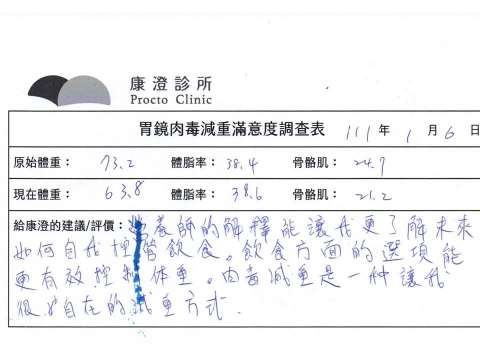 康澄診所
Procto Clinic
胃鏡肉毒減重滿意度調查表 111 年 1 月 6 日
原始體重： 73.2 體脂率： 38.4 骨骼肌： 24.7
現在體重： 63.8 體脂率： 38.6 骨骼肌： 21.2
給康澄的建議/評價： 養師的解釋能讓我更了解未來
如何自我控管飲食。飲食方面的選項能
更有效控制體重。肉毒減重是一種讓我
很自在的減重方式.